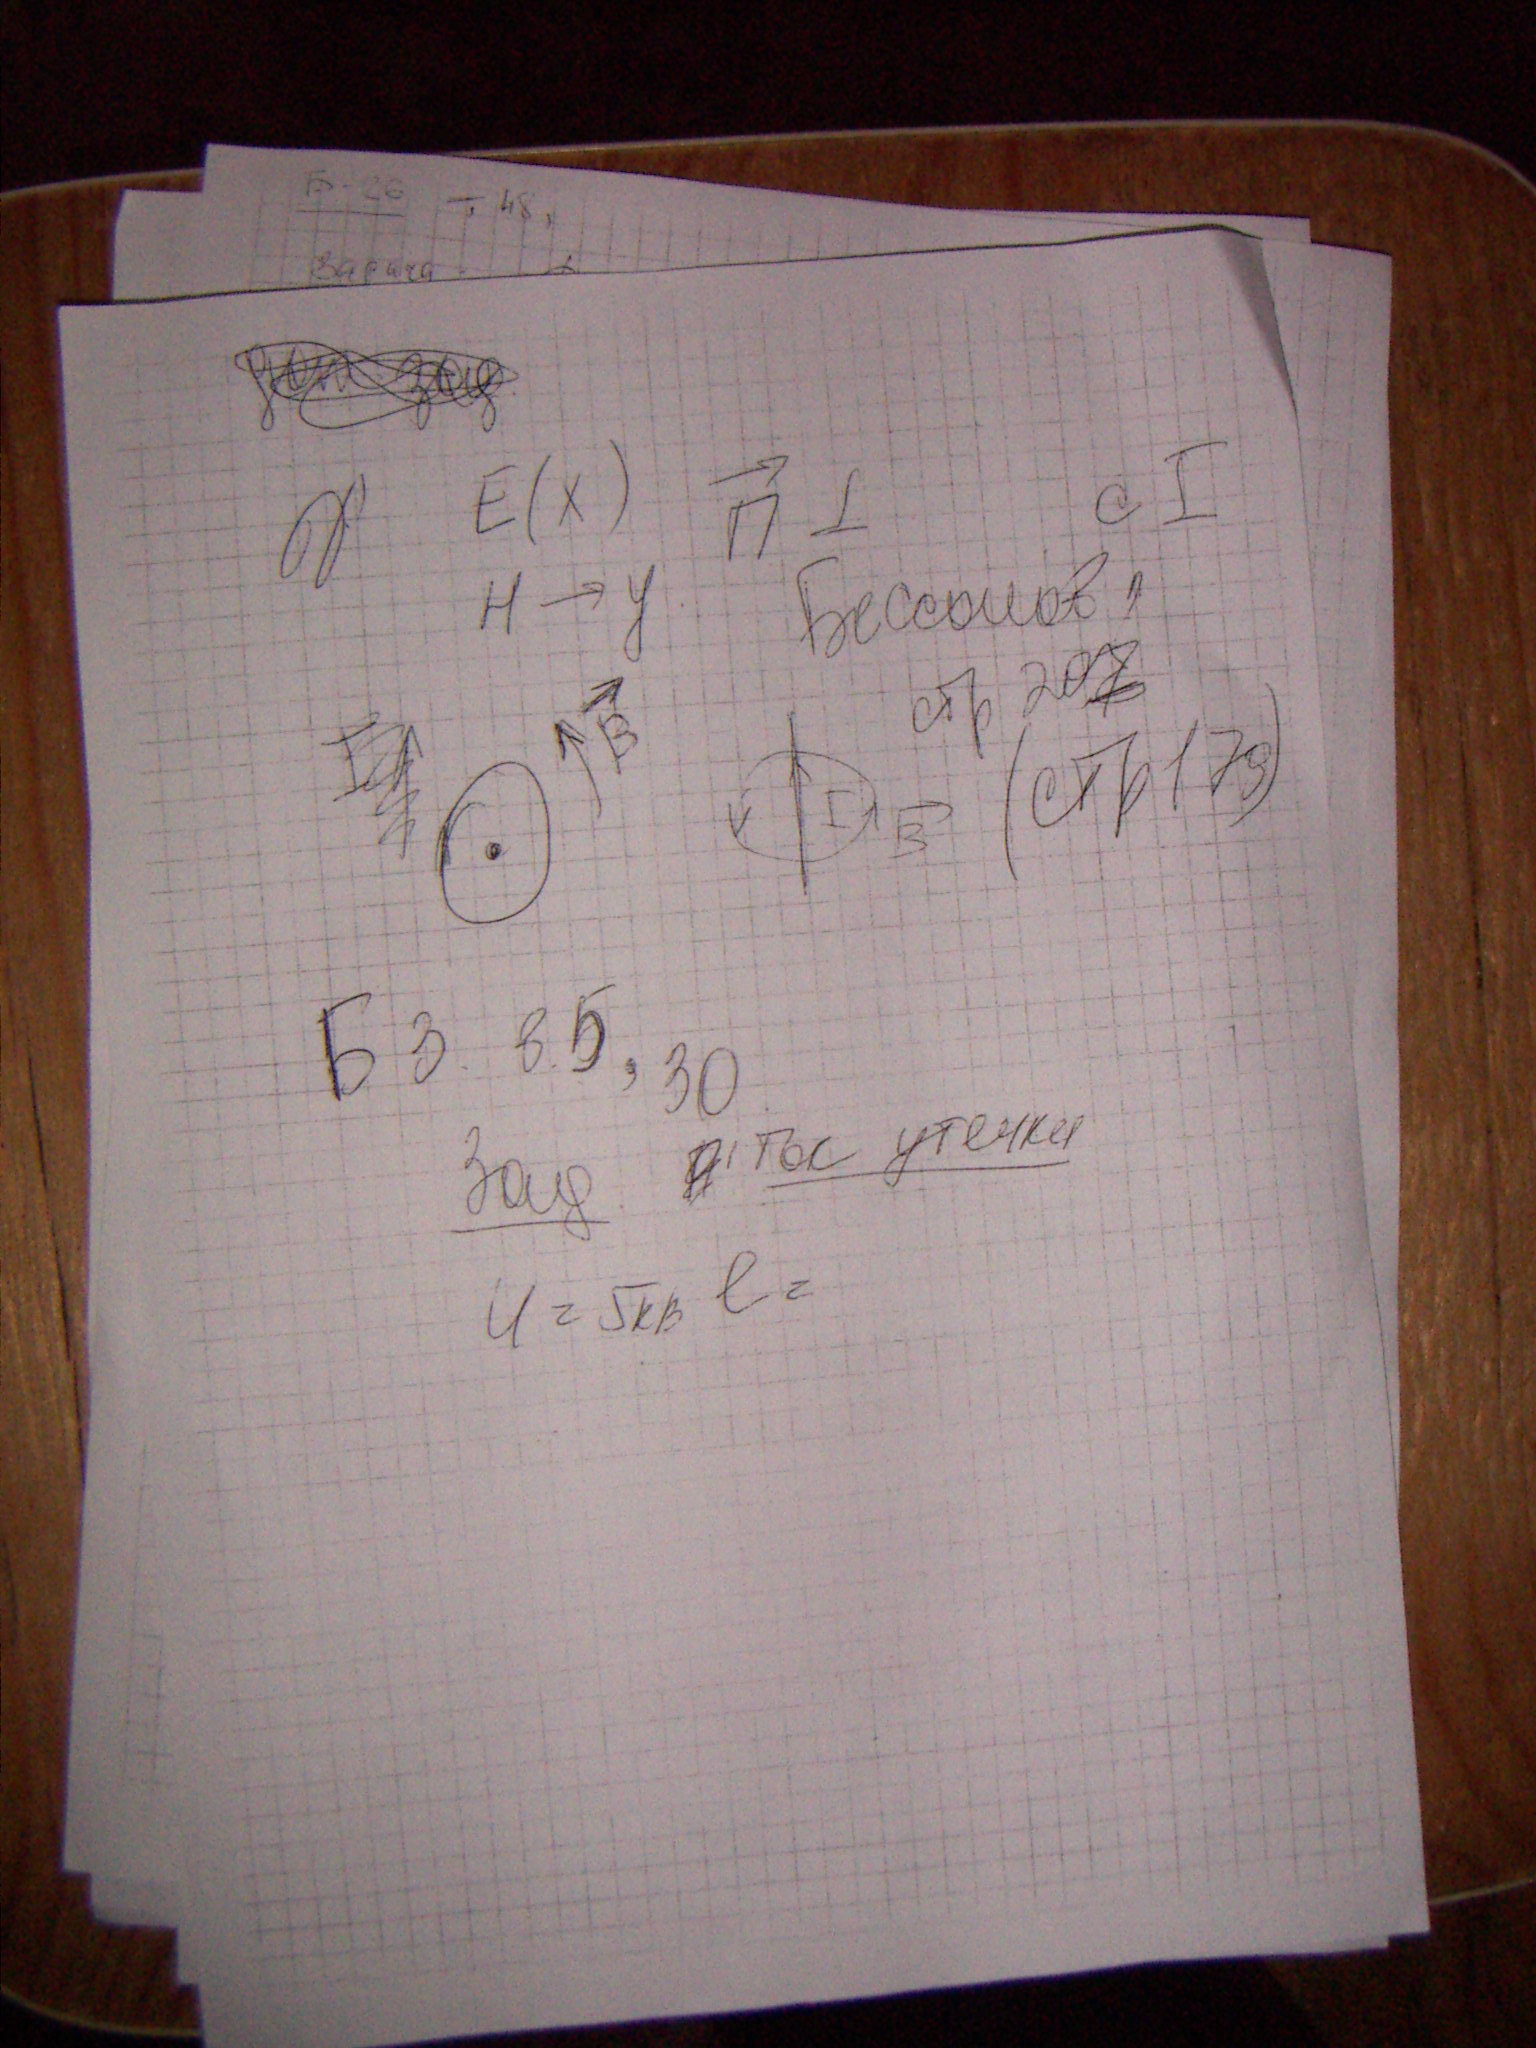 Б-26 т. 48,
Задача
E(x) П ⊥ с I
H → y Бессонов,
стр 207
B
I B (стр 173)
Б 3. в. 5, 30
Зад. ток утечки
U = 5кв l =